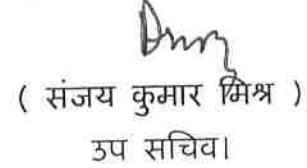 ( संजय कुमार मिश्र )
उप सचिव।